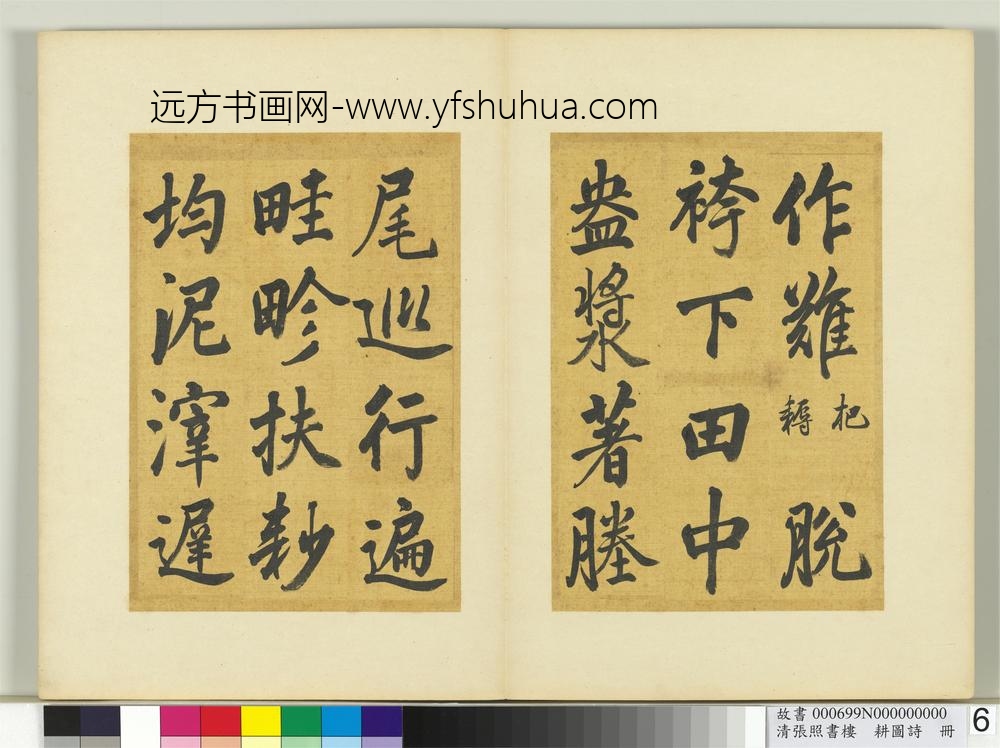 远方书画网-www.yfshuhua.com
作難杷耨脫
袴下田中
盎漿著塍
尾巡行遍
畦畛扶耖
均泥滓遲
故書 000699N000000000
清張照書樓 耕圖詩 冊
6